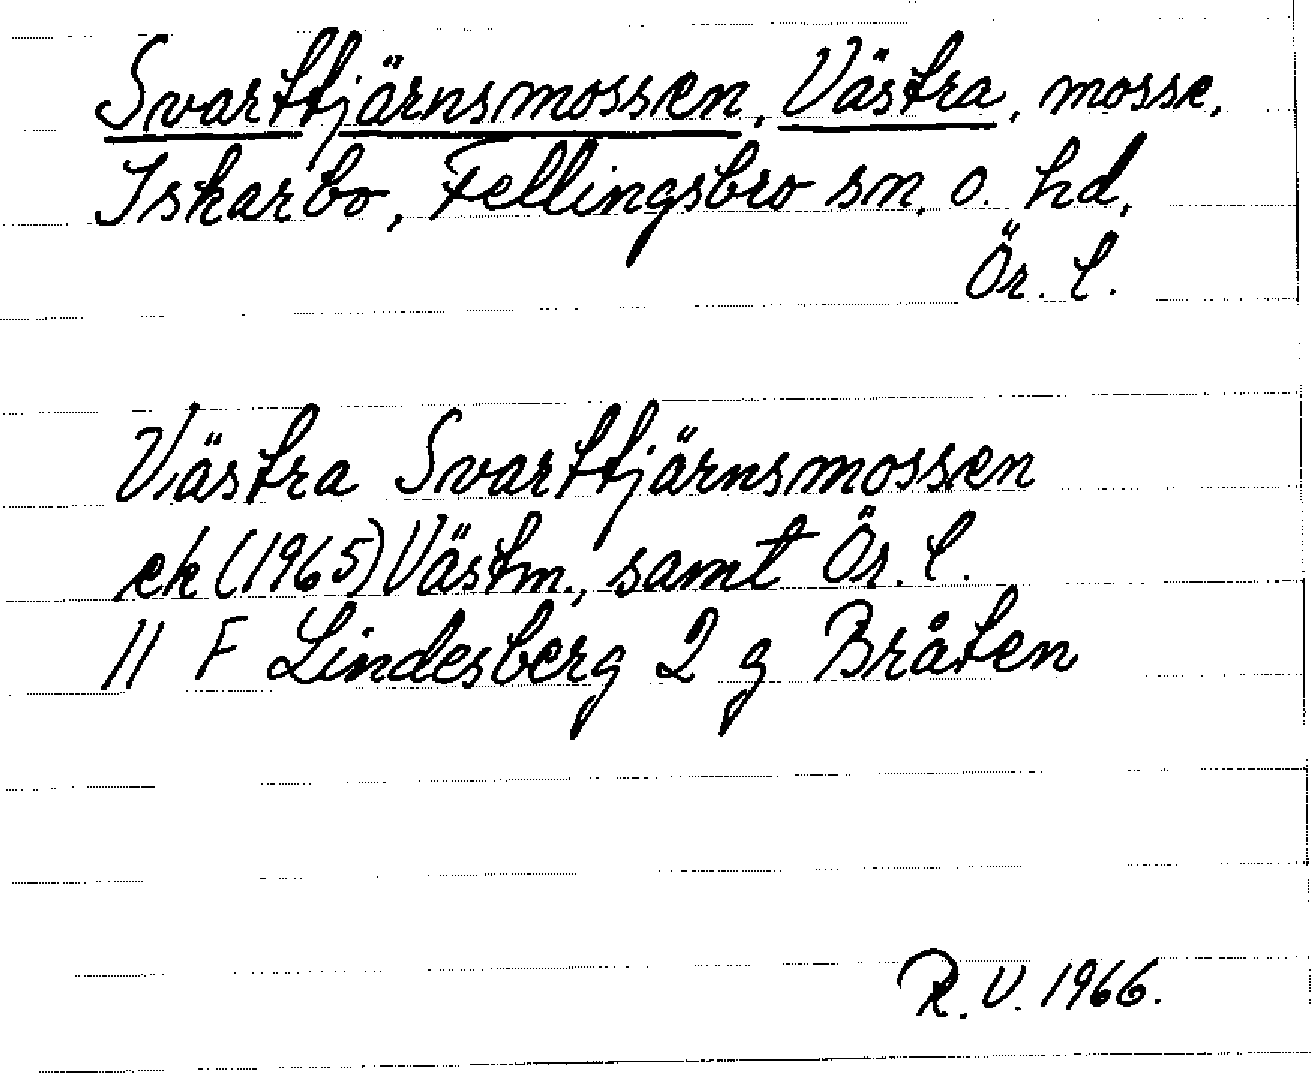 Svarttjärnsmossen, Västra, mosse,
Iskarbo, Fellingsbro sn. o. hd,
Ör. l.
Västra Svarttjärnsmossen
ek (1965) Västm., samt Ör. l.
11 F Lindesberg 2 g Bråten
R. V. 1966.